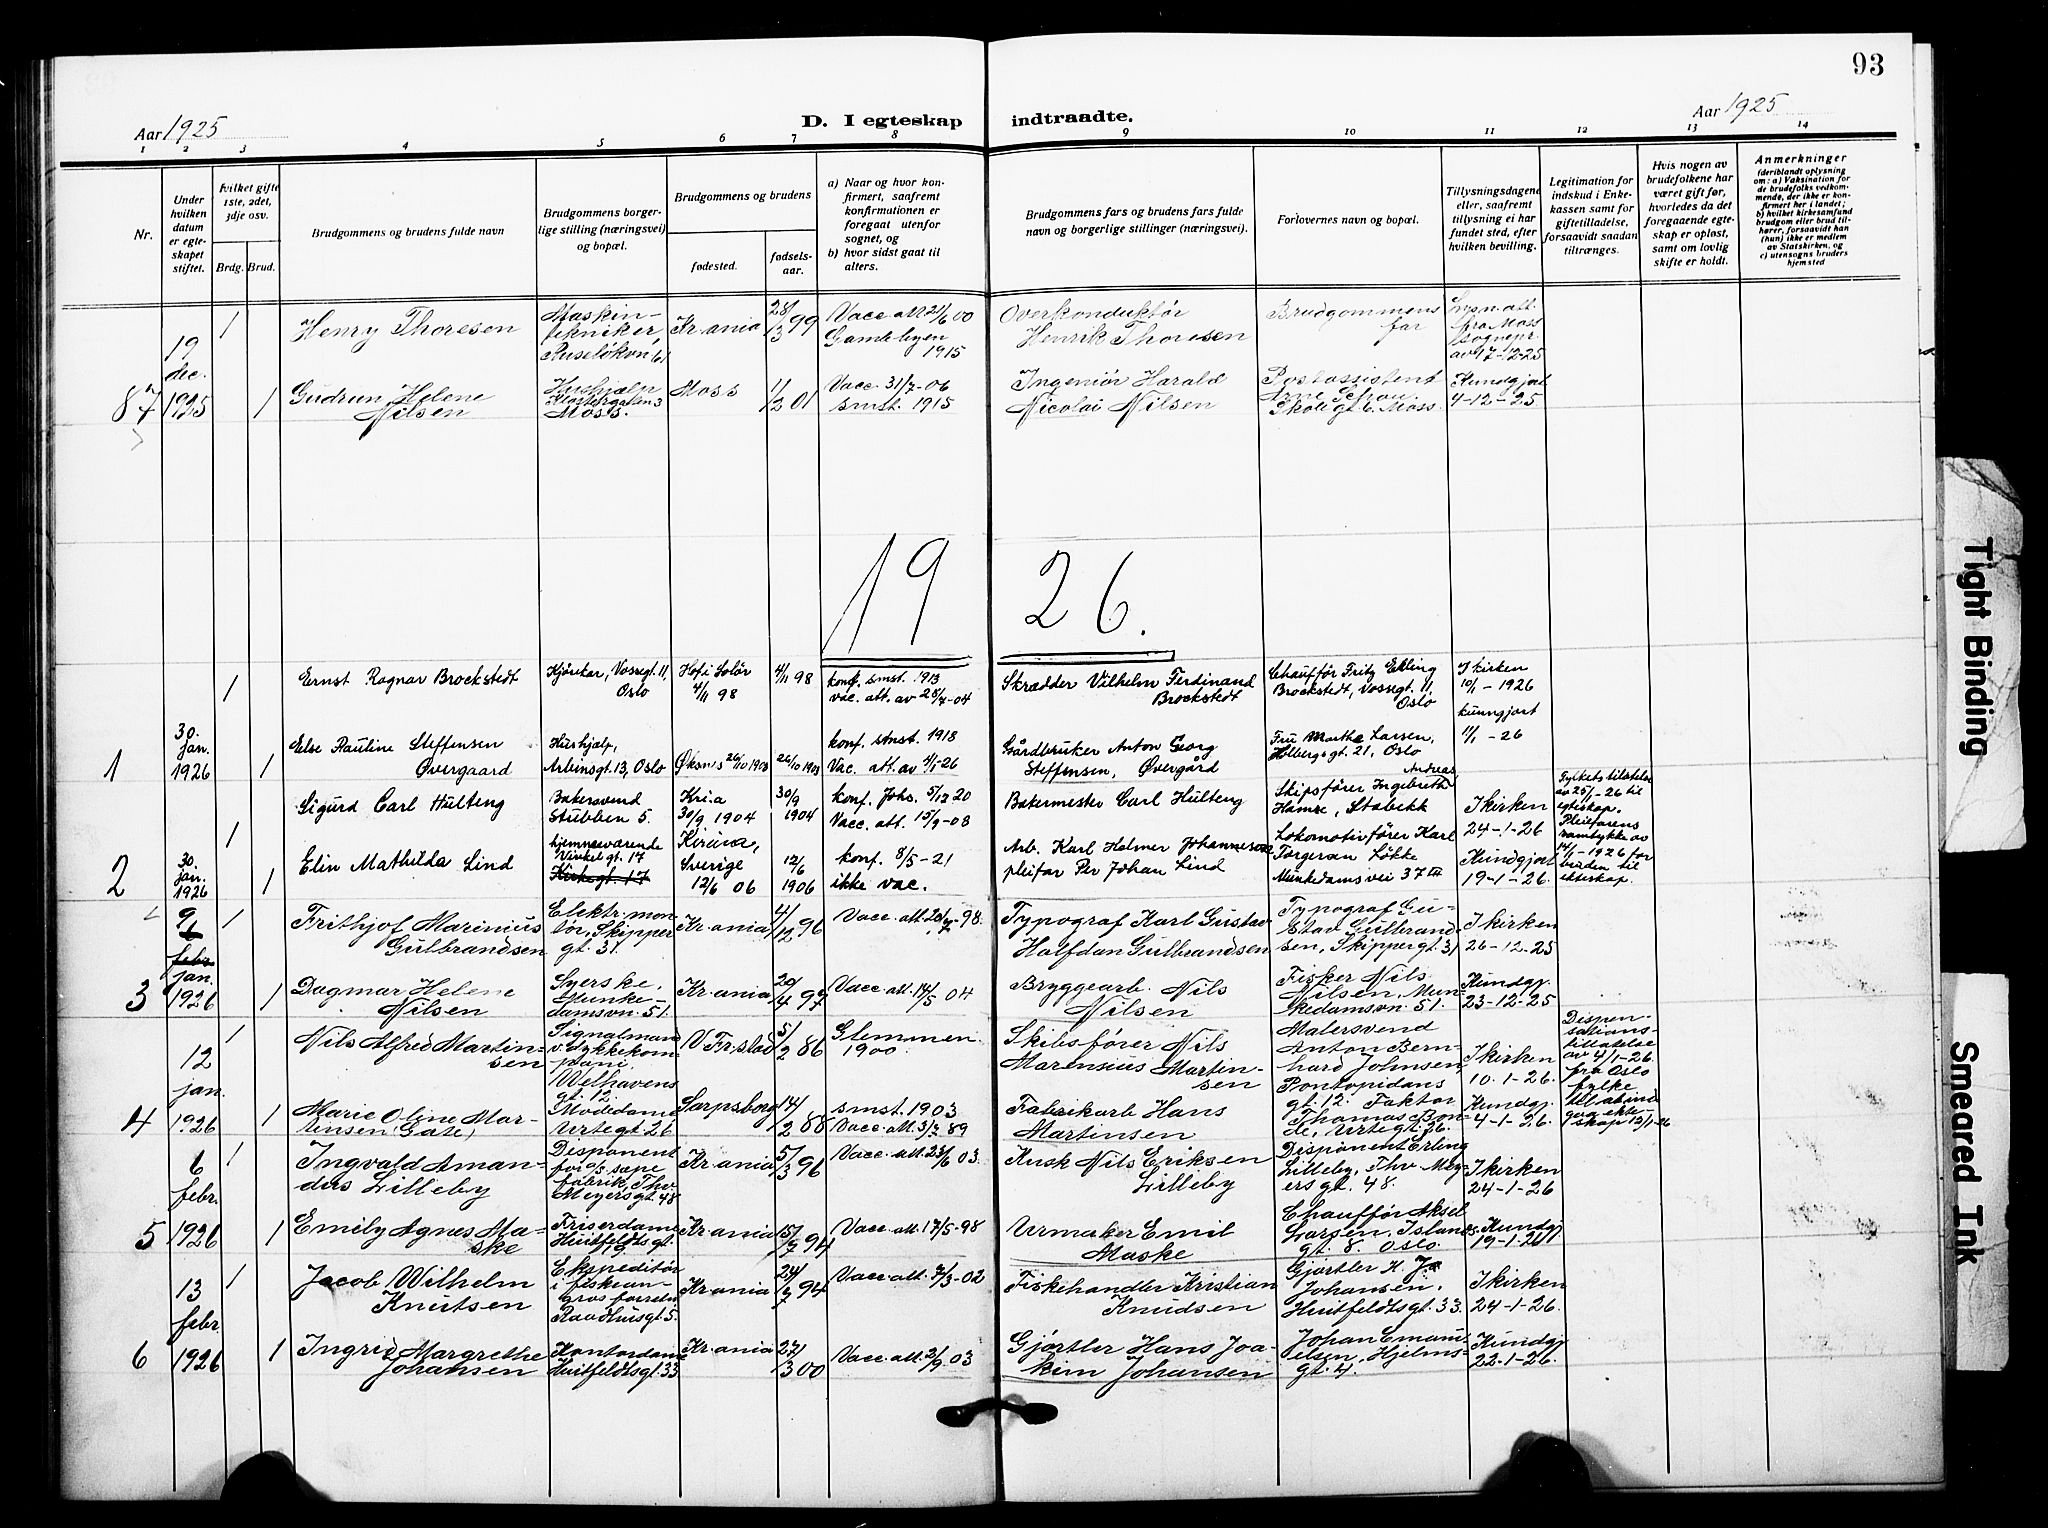 93
Aar 1925
D. I egteskap indtraadte.
Aar 1925
1 2 3 4 5 6 7 8 9 10 11 12 13 14
Nr.
Under
hvilken
datum
er egte-
skapet
stiftet.
hvilket gifte
1ste, 2det,
3dje osv.
Brdg. Brud.
Brudgommens og brudens fulde navn
Brudgommens borger-
lige stilling (næringsvei)
og bopæl.
Brudgommens og brudens
fødested.
fødsels-
aar.
a) Naar og hvor kon-
firmert, saafremt
konfirmationen er
foregaat utenfor
sognet, og
b) hvor sidst gaat til
alters.
Brudgommens fars og brudens fars fulde
navn og borgerlige stillinger (næringsvei).
Forlovernes navn og bopæl.
Tillysningsdagene
eller, saafremt
tillysning ei har
fundet sted, efter
hvilken bevilling.
Legitimation for
indskud i Enke-
kassen samt for
giftetilladelse,
forsaavidt saadan
tiltrænges.
Hvis nogen av
brudefolkene har
været gift før,
hvorledes da det
foregaaende egte-
skap er opløst,
samt om lovlig
skifte er holdt.
Anmerkninger
(deriblandt oplysning
om: a) Vaksination for
de brudefolks vedkom-
mende, der ikke er kon-
firmert her i landet;
b) hvilket kirkesamfund
brudgom eller brud til-
hører, forsaavidt han
(hun) ikke er medlem
av Statskirken, og
c) utensogns bruders
hjemsted
87
19
dec.
1925
1
Henry Thoresen
Maskin-
tekniker,
Ruseløkvn. 61
Kr.ania
28/3 99
Vacc. att. 21/6 00
Gamlebyen
1915
Overkonduktør
Henrik Thoresen
Brudgommens
far
Lysn. att.
fra Moss
sognepr.
av 17-12-25
1
Gudrun Helene
Nilsen
Hushjælp
Klostergaten 3
Moss.
Moss
11/2 01
Vacc. 31/7-06
smst. 1915
Ingeniør Harald
Nicolai Nilsen
Postassistent
Arne Schou
Skolegt. 6. Moss.
Kundgjort
4-12-25
19 26.
1
30.
jan.
1926
1
Ernst Ragnar Brockstedt
Kjørekar, Vossegt. 11,
Oslo
Hof i Solør
4/11 98
4/11 98
konf. smst. 1913
vac. att. av 28/7-04
Skrædder Vilhelm Ferdinand
Brockstedt
Chauffør Fritz Elling
Brockstedt, Vossegt. 11,
Oslo
I kirken
10/1-1926
kunngjort
11/1-26
1
Else Pauline Steffensen
Øvergaard
Hushjælp,
Arbinsgt. 13, Oslo
Øksnes 26/10 1903
26/10 1903
konf. smst. 1918
Vac. att. av 4/1-26
Gårdbruker Anton Georg
Steffensen, Øvergård
Fru Marthe Larsen,
Holbergsgt. 21, Oslo
2
30.
jan.
1926
1
Sigurd Carl Hulteng
Bakersvend
Stubben 5.
Kr.ia
30/9 1904
30/9
1904
konf. Johs. 5/12 20
Vacc. att. 15/9-08
Bakermester Carl Hulteng
Andreas
Skipsfører Ingebreth
Hamre, Stabekk
I kirken
24-1-26
Fylkets tilatelse
av 25/1-26 til
egteskap.
Pleiefarens
samtykke av
14/1-1926 for
bruden til
ekteskap.
1
Elin Mathilda Lind
hjemmeværende
Vinkelgt. 17
Kirkegt. 17
Kiruna,
Sverige
12/6 06
12/6
1906
konf. 8/5-21
ikke vac.
Arb. Karl Holmer Johannesson
pleifar Per Johan Lind
Lokomotivfører Karl
Torgersen Løkke
Munkedamsvei 37 III
Kundgjort
19-1-26.
3
9/1
febr.
jan.
1926
1
Frithjof Marinius
Gulbrandsen
Elektr. mon-
tør, Skipper
gt. 31.
Kr.ania
4/12 96
Vacc. att. 20/7-98.
Typograf Karl Gustav
Halfdan Gulbrandsen
Typograf Gu-
stav Gulbrand-
sen, Skippergt. 31
I kirken
26-12-25
1
Dagmar Helene
Nilsen
Syerske,
Munke-
damsvn. 51.
Kr.ania
20/4 97
Vacc. att. 14/5 04
Bryggearb. Nils
Nilsen
Fisker Nils
Nilsen, Mun-
kedamsvn. 51.
Kundgj.
23-12-25
4
12
jan.
1926
1
Nils Alfred Martin-
sen
Signalmand
v. dykkekom-
pani.
Welhavens
gt. 12.
V. Fr.stad
5/2 86
Glemmen.
1900
Skibsfører Nils
Marensius Martin-
sen
Malersvend
Anton Bern-
hard Johnsen
Pontopidans
gt. 12.
I kirken
10.1-26.
Dispen-
sations-
tillatelse
av 4/1-26.
fra Oslo
fylke
til at ind
gaa ekte-
skap 12/1-26
1
Marie Oline Mar-
tinsen (Gate)
Modedame
Urtegt. 26
Sarpsborg
14/2 88
smst. 1903
Vacc. att. 3/3 89
Fabrikarb. Hans
Martinsen
Faktor
Thomas Bon-
de, Urtegt. 26.
Kundgj.
4-1-26.
5
6
febr.
1926
1
Ingvald Aman-
dus Lilleby
Disponent
for a/s sæpe
fabrik, Thv.
Meyersgt. 48
Kr.ania
5/3 96
Vacc. att. 23/6 03.
Kusk Nils Eriksen
Lilleby
Disponent Erling
Lilleby, Thv. Mey-
ersgt. 48.
I kirken
24-1-26
1
Emily Agnes Ma-
ske
Friserdame
Huitfeldtsgt.
19.
Kr.ania
15/7 94
Vacc. att. 17/5-98
Urmaker Emil
Maske
Chauffør Aksel
Larsen, Islands
gt. 8. Oslo.
Kundgj.
19-1-26
6
13
febr.
1926
1
Jacob Wilhelm
Knutsen
Ekspeditør
i fiske en-
gros forretn.
Raadhusgt. 5.
Kr.ania
24/7 94
Vacc. att. 7/3-02
Fiskehandler Kristian
Knudsen
Gjørtler H. Jo.
Johansen,
Huitfeldtsgt. 33.
I kirken
24-1-26.
1
Ingrid Margrethe
Johansen
Kontordame
Huitfeldtsgt. 33
Kr.ania
27/3 00
Vacc. att. 2/9 03
Gjørtler Hans Joa-
kim Johansen
Johan Emanu-
elsen, Hjelms-
gt. 4.
Kundgj.
22-1-26.
Tight Binding
Smeared Ink